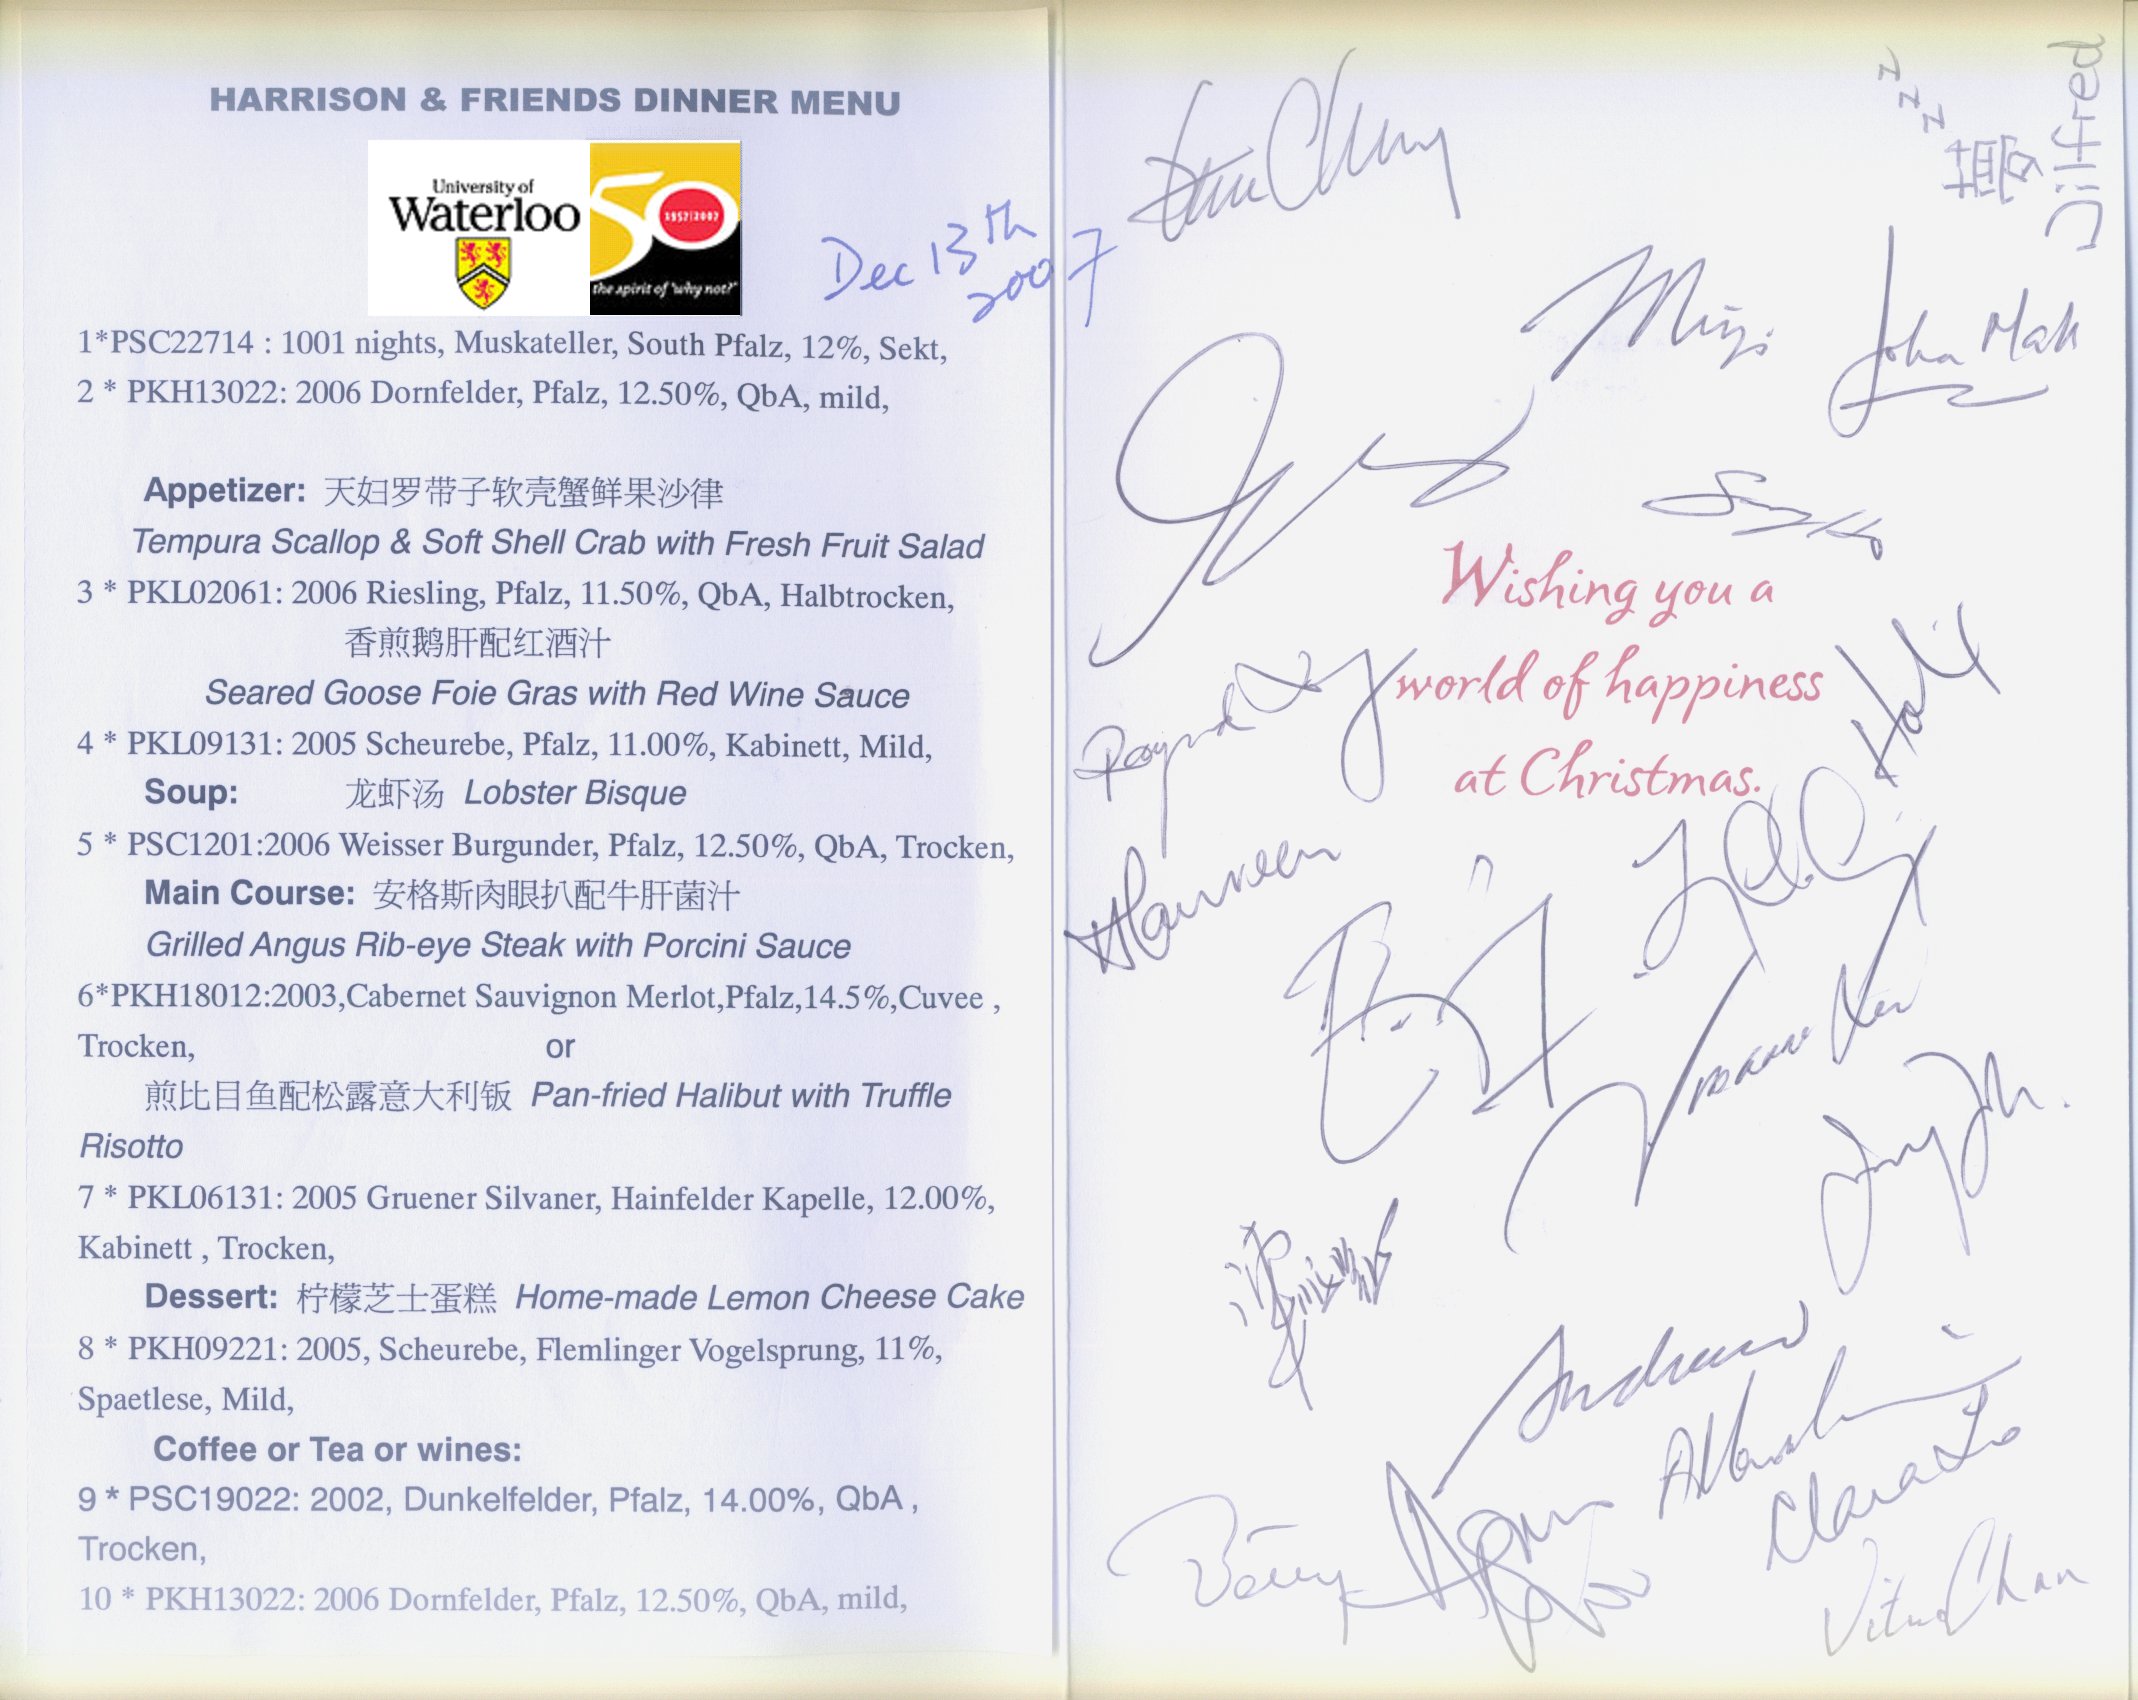 HARRISON & FRIENDS DINNER MENU
University of
Waterloo
50
1957|2007
the spirit of "why not?"
Dec 13th
2007
1*PSC22714 : 1001 nights, Muskateller, South Pfalz, 12%, Sekt,
2 * PKH13022: 2006 Dornfelder, Pfalz, 12.50%, QbA, mild,
Appetizer: 天妇罗带子软壳蟹鲜果沙律
Tempura Scallop & Soft Shell Crab with Fresh Fruit Salad
3 * PKL02061: 2006 Riesling, Pfalz, 11.50%, QbA, Halbtrocken,
香煎鹅肝配红酒汁
Seared Goose Foie Gras with Red Wine Sauce
4 * PKL09131: 2005 Scheurebe, Pfalz, 11.00%, Kabinett, Mild,
Soup: 龙虾汤 Lobster Bisque
5 * PSC1201:2006 Weisser Burgunder, Pfalz, 12.50%, QbA, Trocken,
Main Course: 安格斯肉眼扒配牛肝菌汁
Grilled Angus Rib-eye Steak with Porcini Sauce
6*PKH18012:2003,Cabernet Sauvignon Merlot,Pfalz,14.5%,Cuvee ,
Trocken, or
煎比目鱼配松露意大利饭 Pan-fried Halibut with Truffle
Risotto
7 * PKL06131: 2005 Gruener Silvaner, Hainfelder Kapelle, 12.00%,
Kabinett , Trocken,
Dessert: 柠檬芝士蛋糕 Home-made Lemon Cheese Cake
8 * PKH09221: 2005, Scheurebe, Flemlinger Vogelsprung, 11%,
Spaetlese, Mild,
Coffee or Tea or wines:
9 * PSC19022: 2002, Dunkelfelder, Pfalz, 14.00%, QbA ,
Trocken,
10 * PKH13022: 2006 Dornfelder, Pfalz, 12.50%, QbA, mild,
zzz
John Mak
Wishing you a
world of happiness
at Christmas.
Maureen
Andrew
Clara Lo
Chan